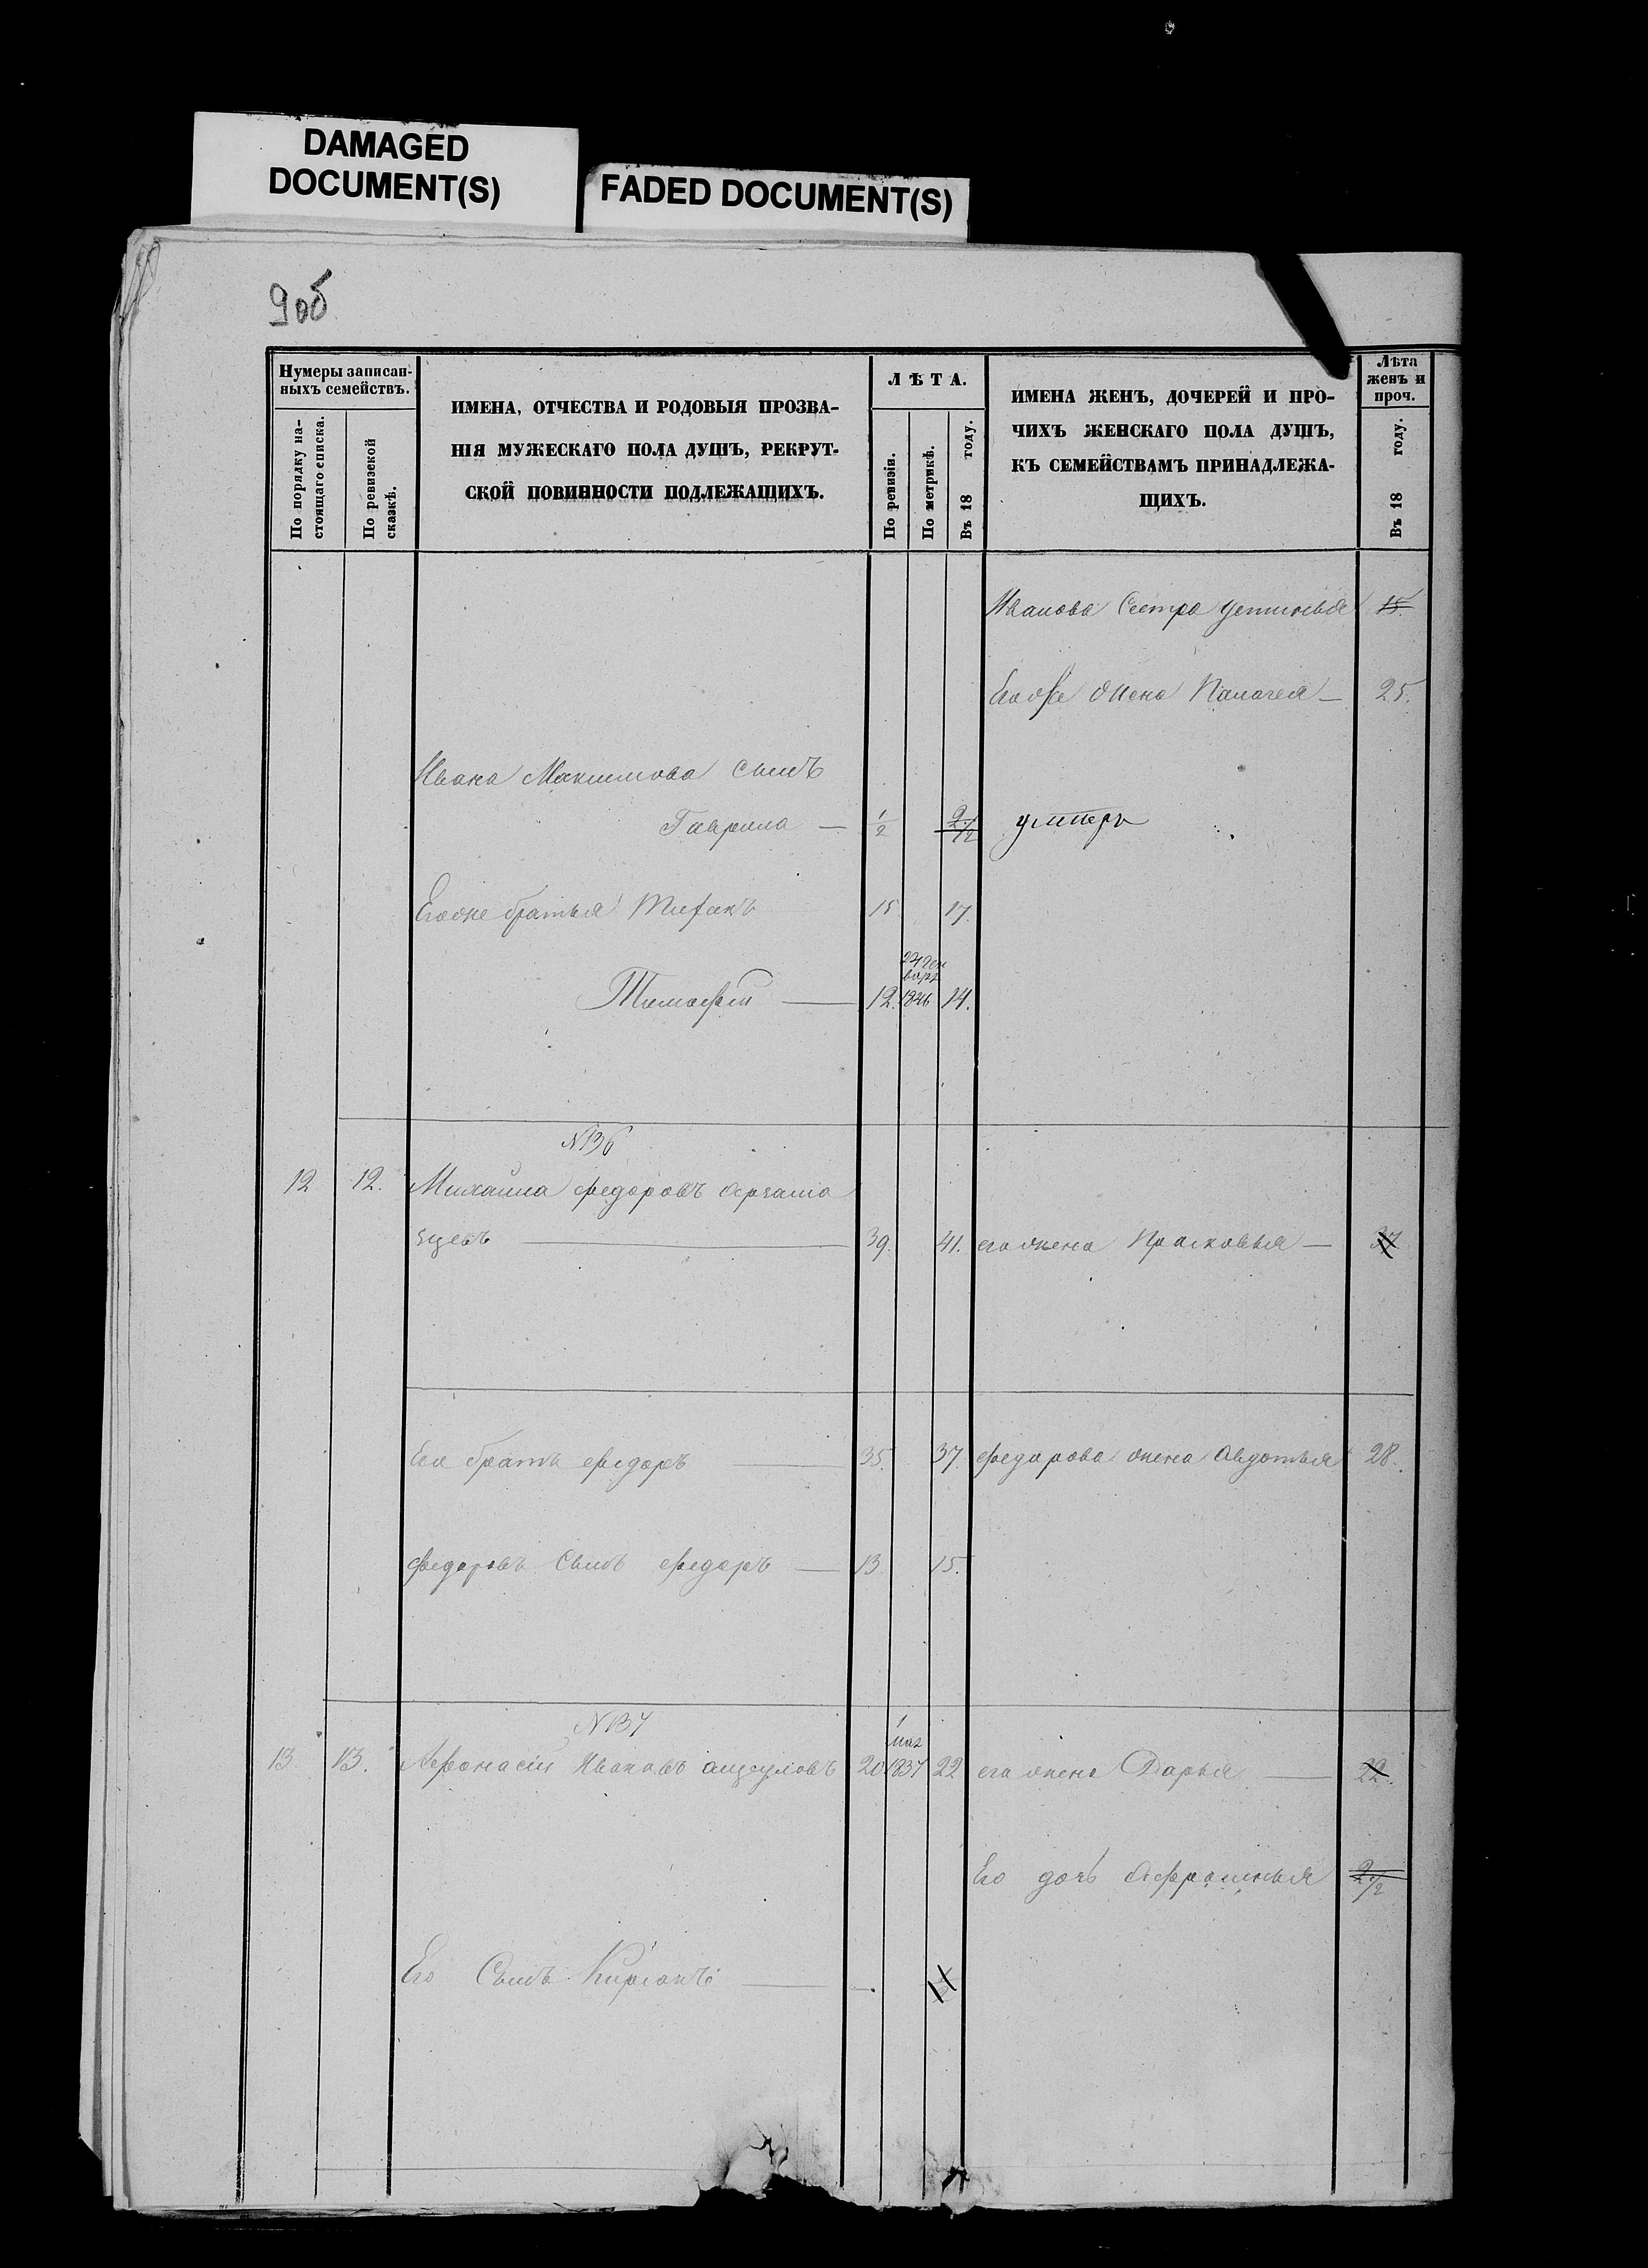 DAMAGED
DOCUMENT(S)
FADED DOCUMENT(S)
9об
Нумеры записан-
ныхъ семействъ.
По порядку на-
стоящаго списка.
По ревизской
сказкѣ.
ИМЕНА, ОТЧЕСТВА И РОДОВЫЯ ПРОЗВА-
НІЯ МУЖЕСКАГО ПОЛА ДУШЪ, РЕКРУТ-
СКОЙ ПОВИННОСТИ ПОДЛЕЖАЩИХЪ.
ЛѢТА.
По ревизіи.
По метрикѣ.
Въ 18 году.
ИМЕНА ЖЕНЪ, ДОЧЕРЕЙ И ПРО-
ЧИХЪ ЖЕНСКАГО ПОЛА ДУШЪ,
КЪ СЕМЕЙСТВАМЪ ПРИНАДЛЕЖА-
ЩИХЪ.
Лѣта
женъ и
проч.
Въ 18 году.
Иванова Сестра Устинья 15.
Его же жена Палагея 25.
Ивана Максимова сынъ
Гаврила 1/2 2 1/2 умеръ
Его же братья 15 17.
Тимофей 12. 1846 14.
№ 36
12 12. Михайла Федоровъ Арзама
зцевъ 39. 41. его жена Прасковья 37
Его братъ Федоръ 35. 37. Федорова жена Авдотья 28.
Федоровъ Сынъ Федоръ 13 15.
№ 37
13 13. Афонасій Ивановъ 20 1 мая 1837 22 его жена Дарья 22.
Его дочь Афросинья 2 1/2
Его Сынъ Кирсанъ